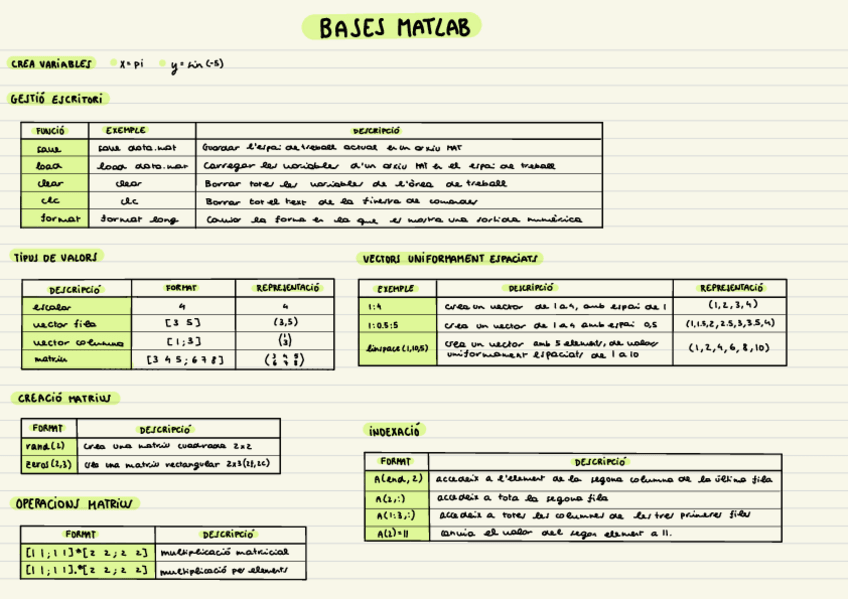 BASES MATLAB
CREA VARIABLES x=pi y=sin(-5)
GESTIÓ ESCRITORI
FUNCIÓ EXEMPLE DESCRIPCIÓ
save save data.mat Guardar l'espai de treball actual en un arxiu MAT
load load data.mat Carregar les variables d'un arxiu MAT en el espai de treball
clear clear Borrar totes les variables de l'àrea de treball
clc clc Borrar tot el text de la finestra de comandes
format format long Canviar la forma en la que es mostra una sortida numèrica
TIPUS DE VALORS
DESCRIPCIÓ FORMAT REPRESENTACIÓ
escalar 4 4
vector fila [3 5] (3,5)
vector columna [1;3] (1 3)
matriu [3 4 5; 6 7 8] (3 4 5 6 7 8)
VECTORS UNIFORMAMENT ESPACIATS
EXEMPLE DESCRIPCIÓ REPRESENTACIÓ
1:4 crea un vector de 1 a 4, amb espai de 1 (1,2,3,4)
1:0.5:5 crea un vector de 1 a 4 amb espai 0,5 (1,1.5,2,2.5,3,3.5,4)
linspace(1,10,5) crea un vector amb 5 elements, de valors (1,2,4,6,8,10)
uniformament espaciats de 1 a 10
CREACIÓ MATRIUS
FORMAT DESCRIPCIÓ
rand(2) crea una matriu cuadrada 2x2
zeros(2,3) crea una matriu rectangular 2x3
INDEXACIÓ
FORMAT DESCRIPCIÓ
A(end,2) accedeix a l'element de la segona columna de la última fila
A(2,:) accedeix a tota la segona fila
A(1:3,:) accedeix a totes les columnes de les tres primeres files
A(2)=11 canvia el valor del segon element a 11.
OPERACIONS MATRIUS
FORMAT DESCRIPCIÓ
[1 1;1 1]*[2 2;2 2] multiplicació matricial
[1 1;1 1].*[2 2;2 2] multiplicació per elements